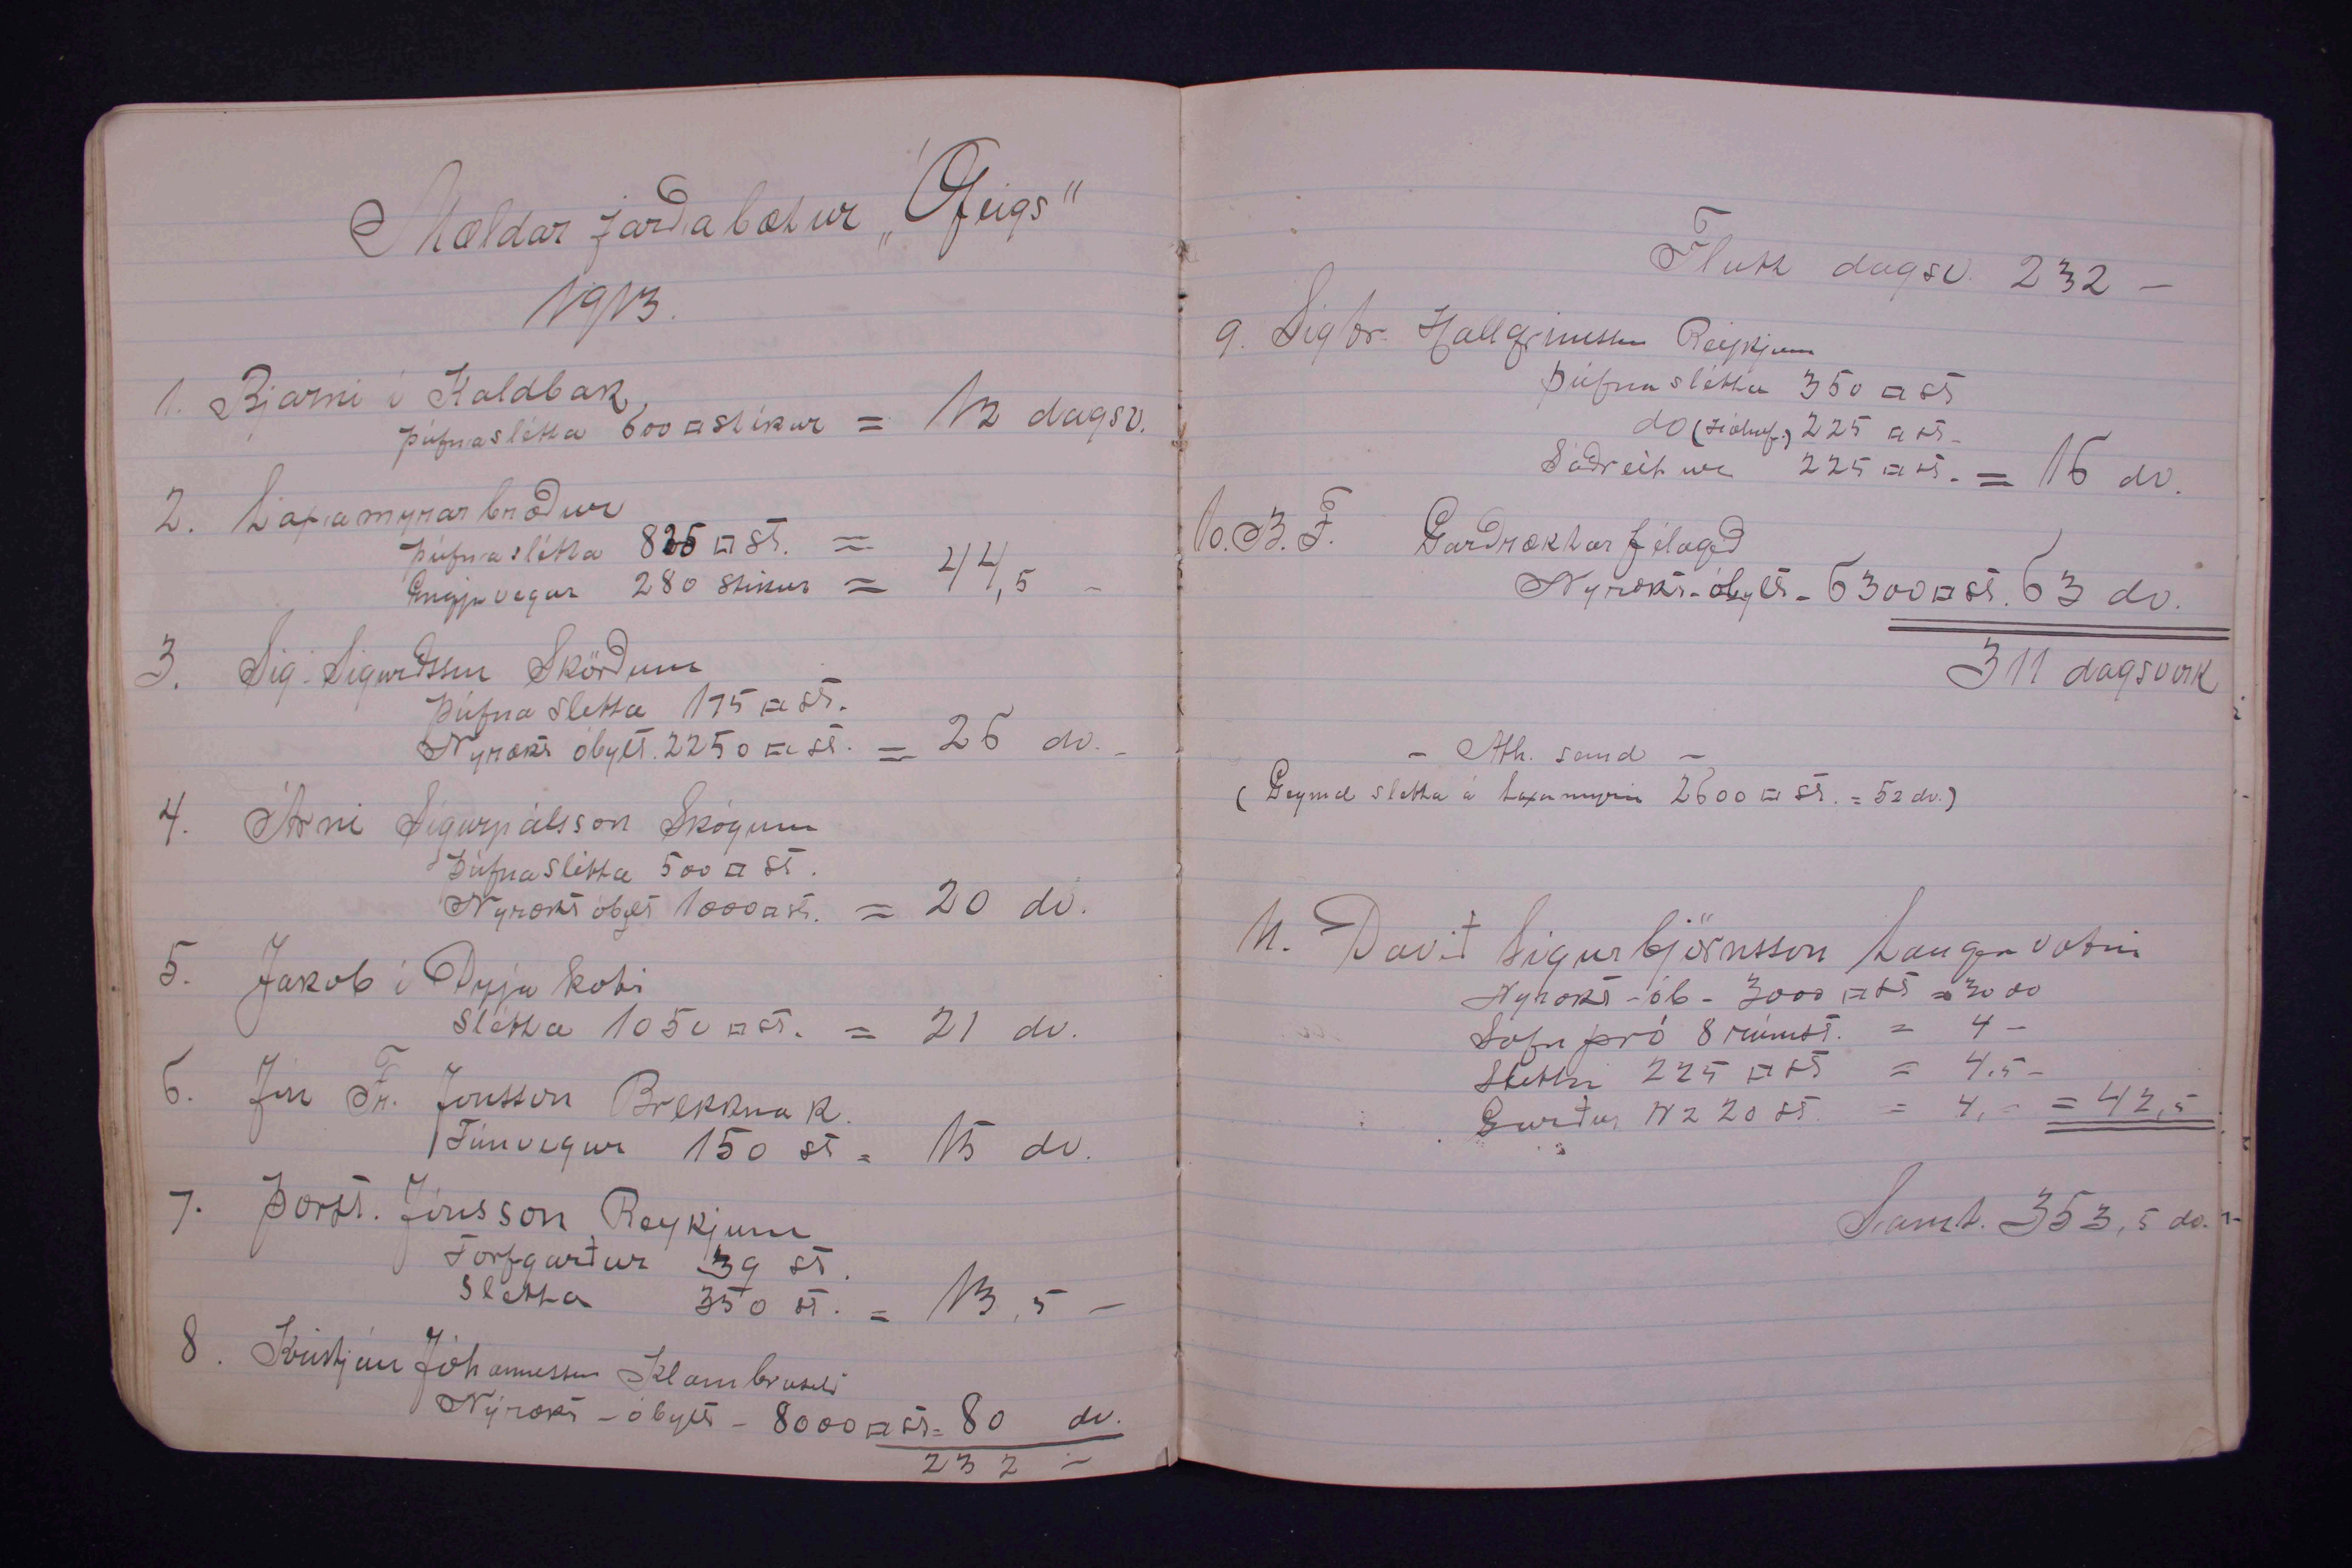 Mældar jarðabætur „Ófeigs"
1913.
1. Bjarni í Kaldbak
þúfnaslétta 600 □ stikur = 12 dagsv.
2. Laxamýrarbræður
þúfnaslétta 825 □ st. =
Engjavegur 280 stikur = 44,5 -
3. Sig. Sigurðsson Skörðum
Þúfnasletta 175 □ st.
Nyrækt óbylt. 2250 □ st. = 26 dv. -
4. Árni Sigurpálsson Skógum
Þúfnaslétta 500 □ st.
Nyrækt óbylt 1000 □ st. = 20 dv.
5. Jakob í Dyjakoti
Slétta 1050 □ st. = 21 dv.
6. Jón Fr. Jónsson Brekknak.
Túnvegur 150 st = 15 dv.
7. Þorst. Jónsson Reykjum
Torfgarður 39 st.
Sletta 350 st. = 13,5 -
8. Kristján Jóhannesson Klambraseli
Nýrækt - óbylt - 8000 □ st. = 80 dv.
232 -
Flutt dagsv. 232 -
9. Sigtr. Hallgrímsson Reykjum
Þúfnaslétta 350 □ st
do 225 □ st -
Sáðreitur 225 □ st. = 16 dv.
10. B. F. Garðræktarfélagið
Nyrækt - óbylt - 6300 □ st. 63 dv.
311 dagsverk
- Ath. semd -
(Geymd sletta á Laxamýri 2600 □ st. = 52 dv.)
11. Davíð Sigurbjörnsson Langavatni
Nyrækt - ób - 3000 □ st = 30 dv
Safnþró 8 rúmst. = 4 -
Sletta 225 □ st = 4,5 -
Garður N 2 20 st. = 4, - = 42,5
Samt. 353,5 dv.